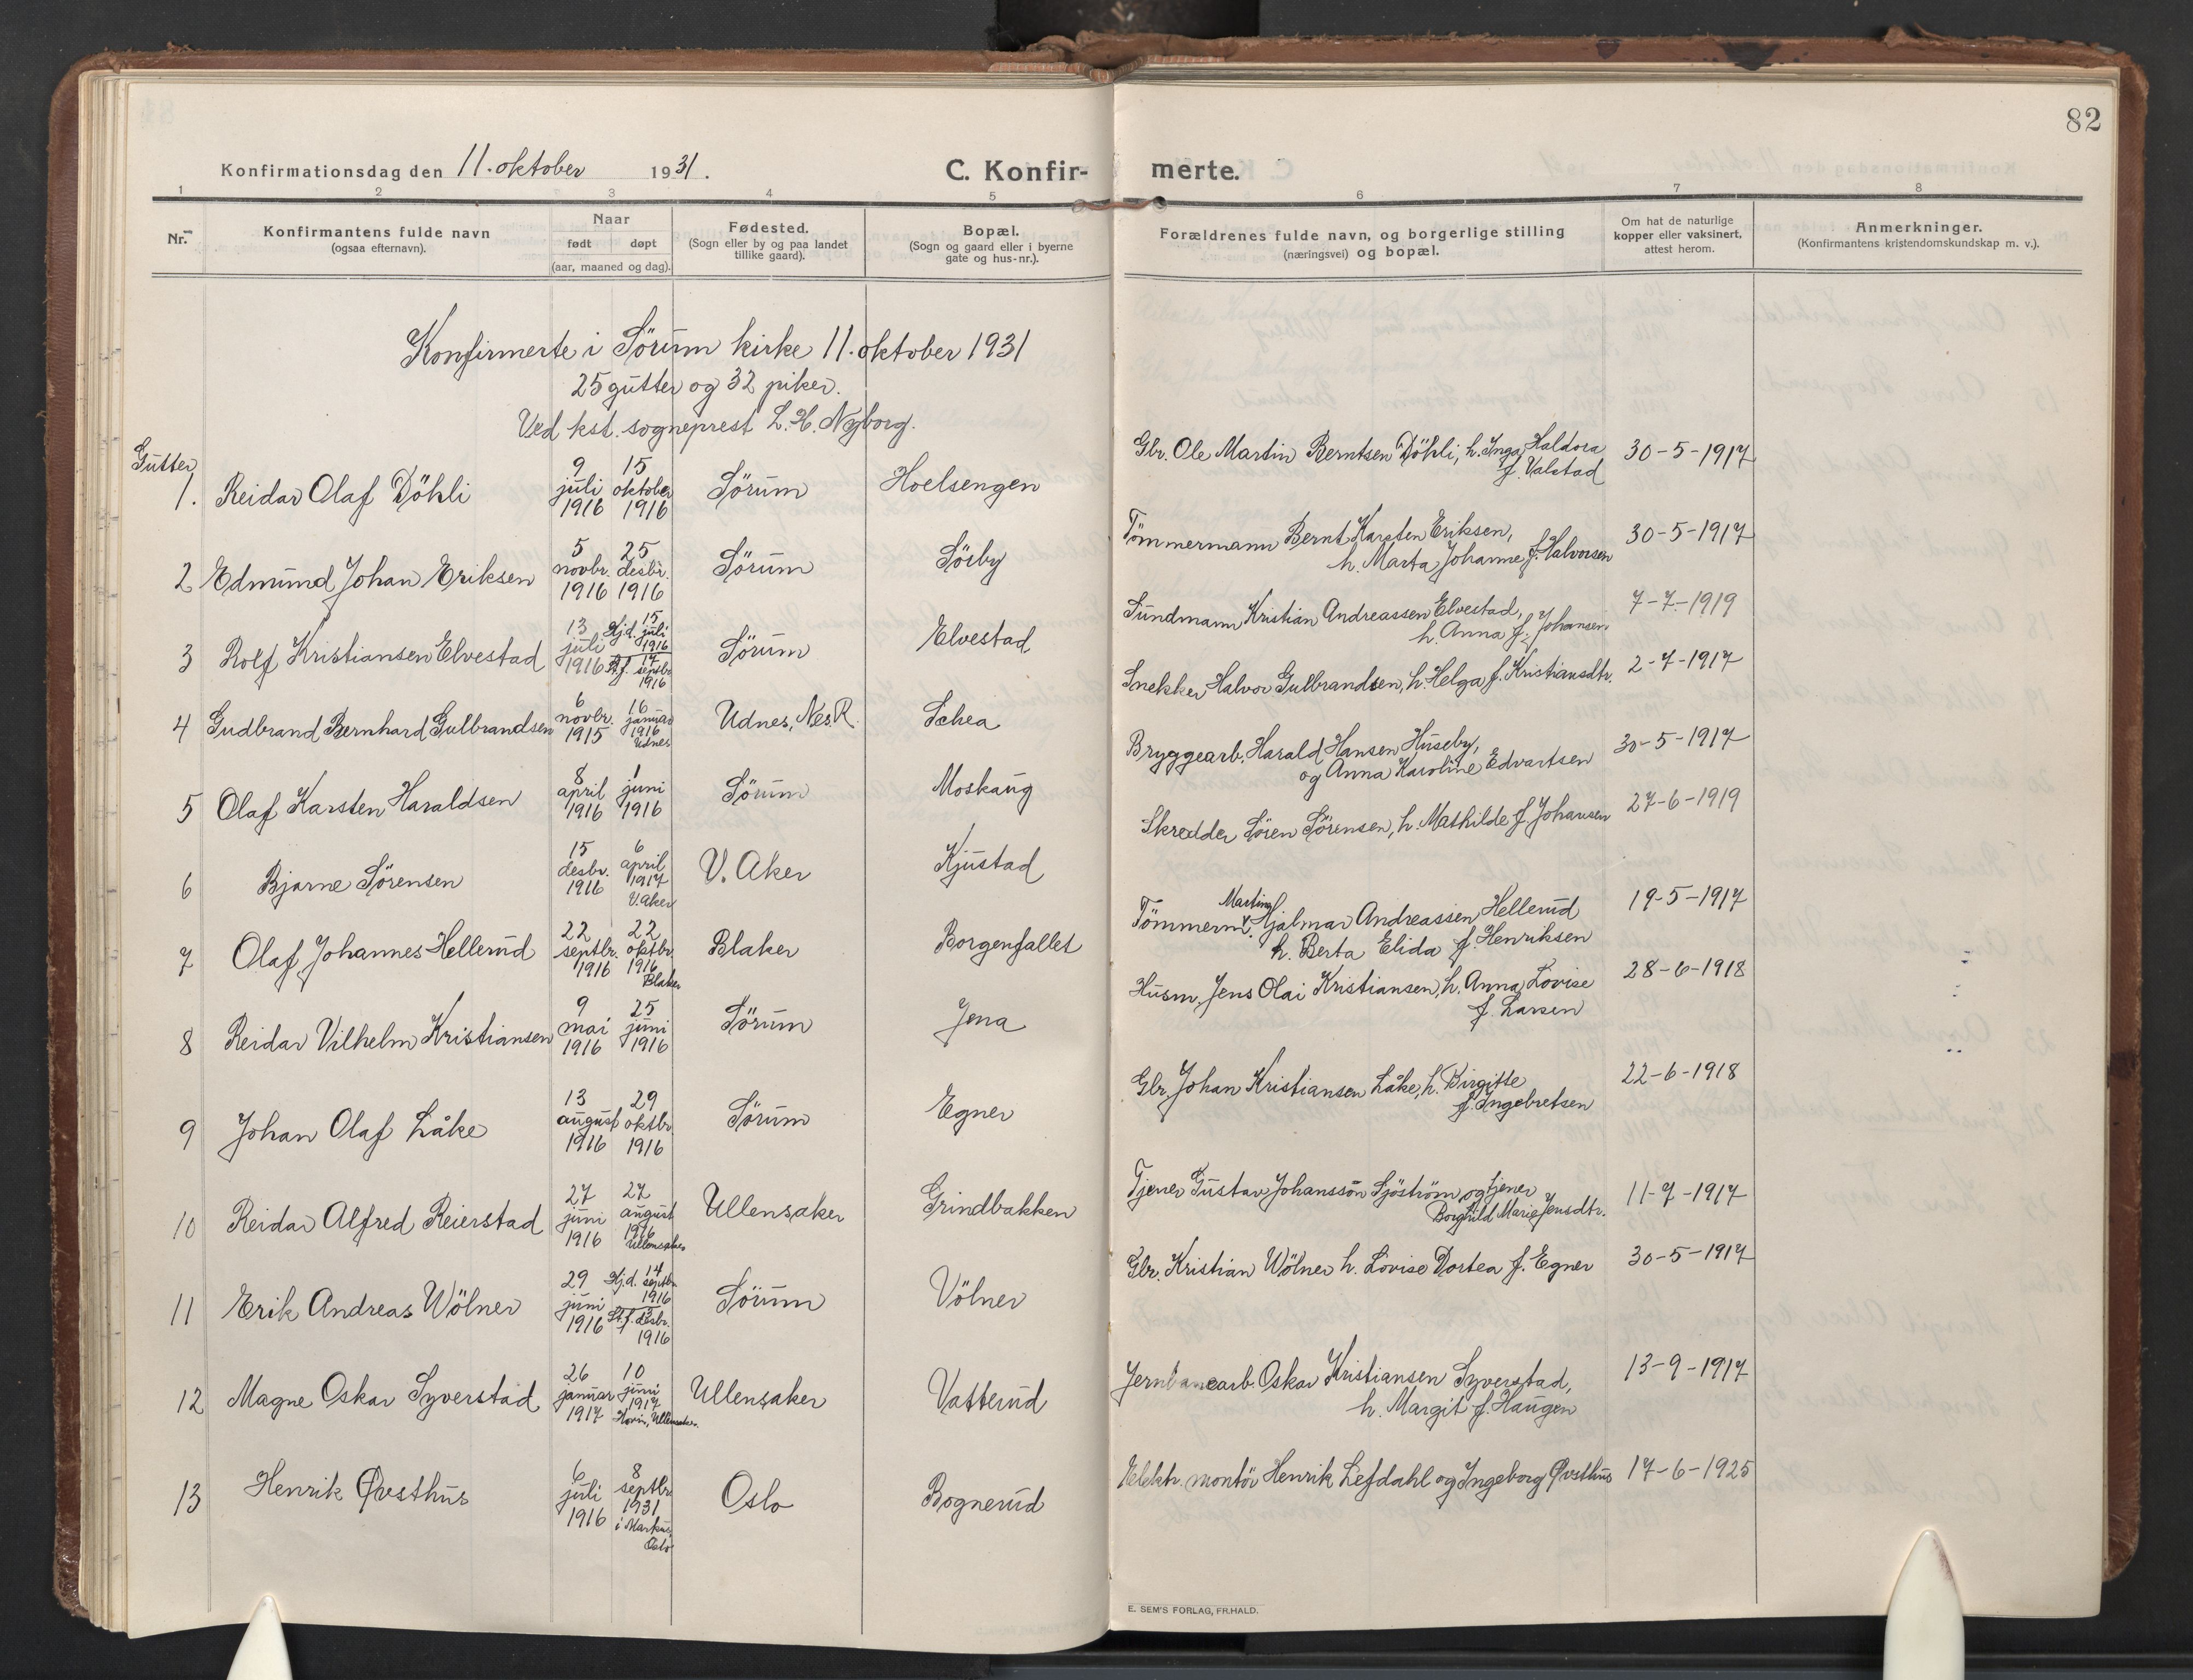 82
Konfirmationsdag den 11. oktober 1931.
C. Konfirmerte.
1 2 3 4 5 6 7 8
Nr.
Konfirmantens fulde navn
(ogsaa efternavn).
Naar
født døpt
(aar, maaned og dag).
Fødested.
(Sogn eller by og paa landet
tillike gaard).
Bopæl.
(Sogn og gaard eller i byerne
gate og hus-nr.).
Forældrenes fulde navn, og borgerlige stilling
(næringsvei) og bopæl.
Om hat de naturlige
kopper eller vaksinert,
attest herom.
Anmerkninger.
(Konfirmantens kristendomskundskap m. v.).
Konfirmerte i Sörum kirke 11. oktober 1931
25 gutter og 32 piker.
Ved kst. sogneprest L. H. Nyborg.
Gutter
1. Reidar Olaf Döhli
9 juli 1916
15 oktober 1916
Sörum
Hoelsengen
Gbr. Ole Martin Berntsen Döhli, h. Inga Haldora
f. Valstad
30-5-1917
2 Edmund Johan Eriksen
5 novbr. 1916
25 desbr. 1916
Sörum
Sörby
Tömmermann Bernt Karsten Eriksen,
h. Marta Johanne f. Halvorsen
30-5-1917
3 Rolf Kristiansen Elvestad
13 juli 1916
Hj.d. 15 juli 1916
St.f. 17 septbr 1916
Sörum
Elvestad
Sundmann Kristian Andreassen Elvestad,
h. Anna f. Johansen.
7-7-1919
4 Gudbrand Bernhard Gulbrandsen
6 novbr. 1915
16 januar 1916 Udnes
Udnes, Nes. R.
Schea
Snekker Halvor Gulbrandsen, h. Helga f. Kristiansdtr.
2-7-1917
5 Olaf Karsten Haraldsen
8 april 1916
1 juni 1916
Sörum
Moskaug
Bryggearb. Harald Hansen Huseby,
og Anna Karoline Edvartsen
30-5-1917
6 Bjarne Sörensen
15 desbr. 1916
6 april 1917 V. Aker
V. Aker
Kjustad
Skredder Sören Sörensen, h. Mathilde f. Johansen
27-6-1919
7 Olaf Johannes Hellerud
22 septbr. 1916
22 oktbr. 1916 Blaker
Blaker
Borgenfallet
Martin
Tömmerm. Hjalmar Andreassen Hellerud
h. Berta Elida f. Henriksen
19-5-1917
8 Reidar Vilhelm Kristiansen
9 mai 1916
25 juni 1916
Sörum
Jena
Husm. Jens Olai Kristiansen, h. Anna Lovise
f. Larsen
28-6-1918
9 Johan Olaf Låke
13 august 1916
29 oktbr 1916
Sörum
Egner
Gbr. Johan Kristiansen Låke, h. Birgitte
f. Ingebretsen
22-6-1918
10 Reidar Alfred Reierstad
27 juni 1916
27 august 1916 Ullensaker
Ullensaker
Grindbakken
Tjener Gustav Johansson Sjöström og tjener
Borghild Marie Jensdtr.
11-7-1917
11 Erik Andreas Wölner
29 juni 1916
Hj.d. 14 septbr 1916
St.f. 3 desbr. 1916
Sörum
Völner
Gbr. Kristian Wölner h. Lovise Dortea f. Egner
30-5-1917
12 Magne Oskar Syverstad
26 januar 1917
10 juni 1917 Hovin, Ullensaker
Ullensaker
Vatterud
Jernbanearb. Oskar Kristiansen Syverstad,
h. Margit f. Haugen
13-9-1917
13 Henrik Øvsthus
6 juli 1916
8 septbr 1931 i Markus, Oslo
Oslo
Bognerud
Elektr. montör Henrik Lefdahl og Ingeborg Øvsthus
17-6-1925
E. SEM'S FORLAG, FR.HALD.